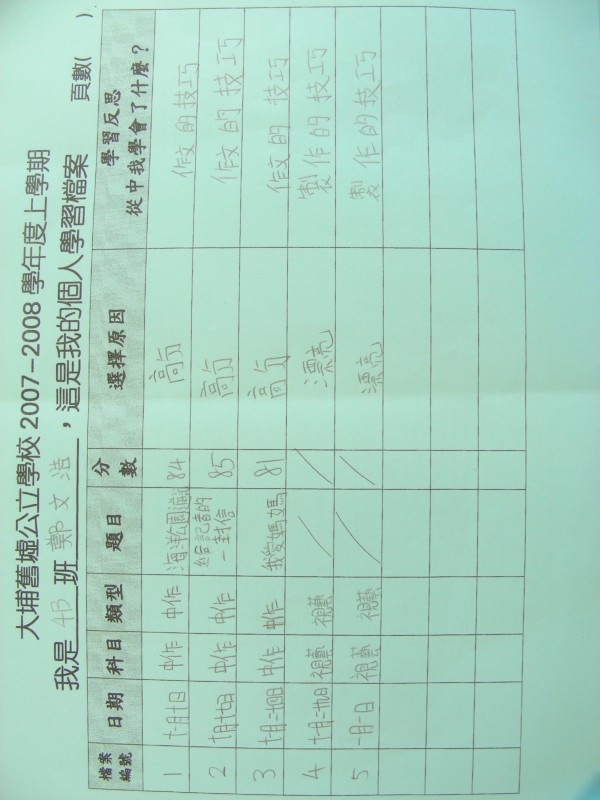 大埔舊墟公立學校 2007-2008 學年度上學期
我是 4B 班 鄭文浩 ，這是我的個人學習檔案 頁數( )
檔案編號 日期 科目 類型 題目 分數 選擇原因 學習反思 從中我學會了什麼？
1 中作 中作 海洋公園遊記 84 高分 作文的技巧
2 中作 中作 給記者的一封信 85 高分 作文的技巧
3 中作 中作 我愛媽媽 81 高分 作文的技巧
4 視藝 視藝 漂亮 製作的技巧
5 一月一日 視藝 視藝 漂亮 製作的技巧